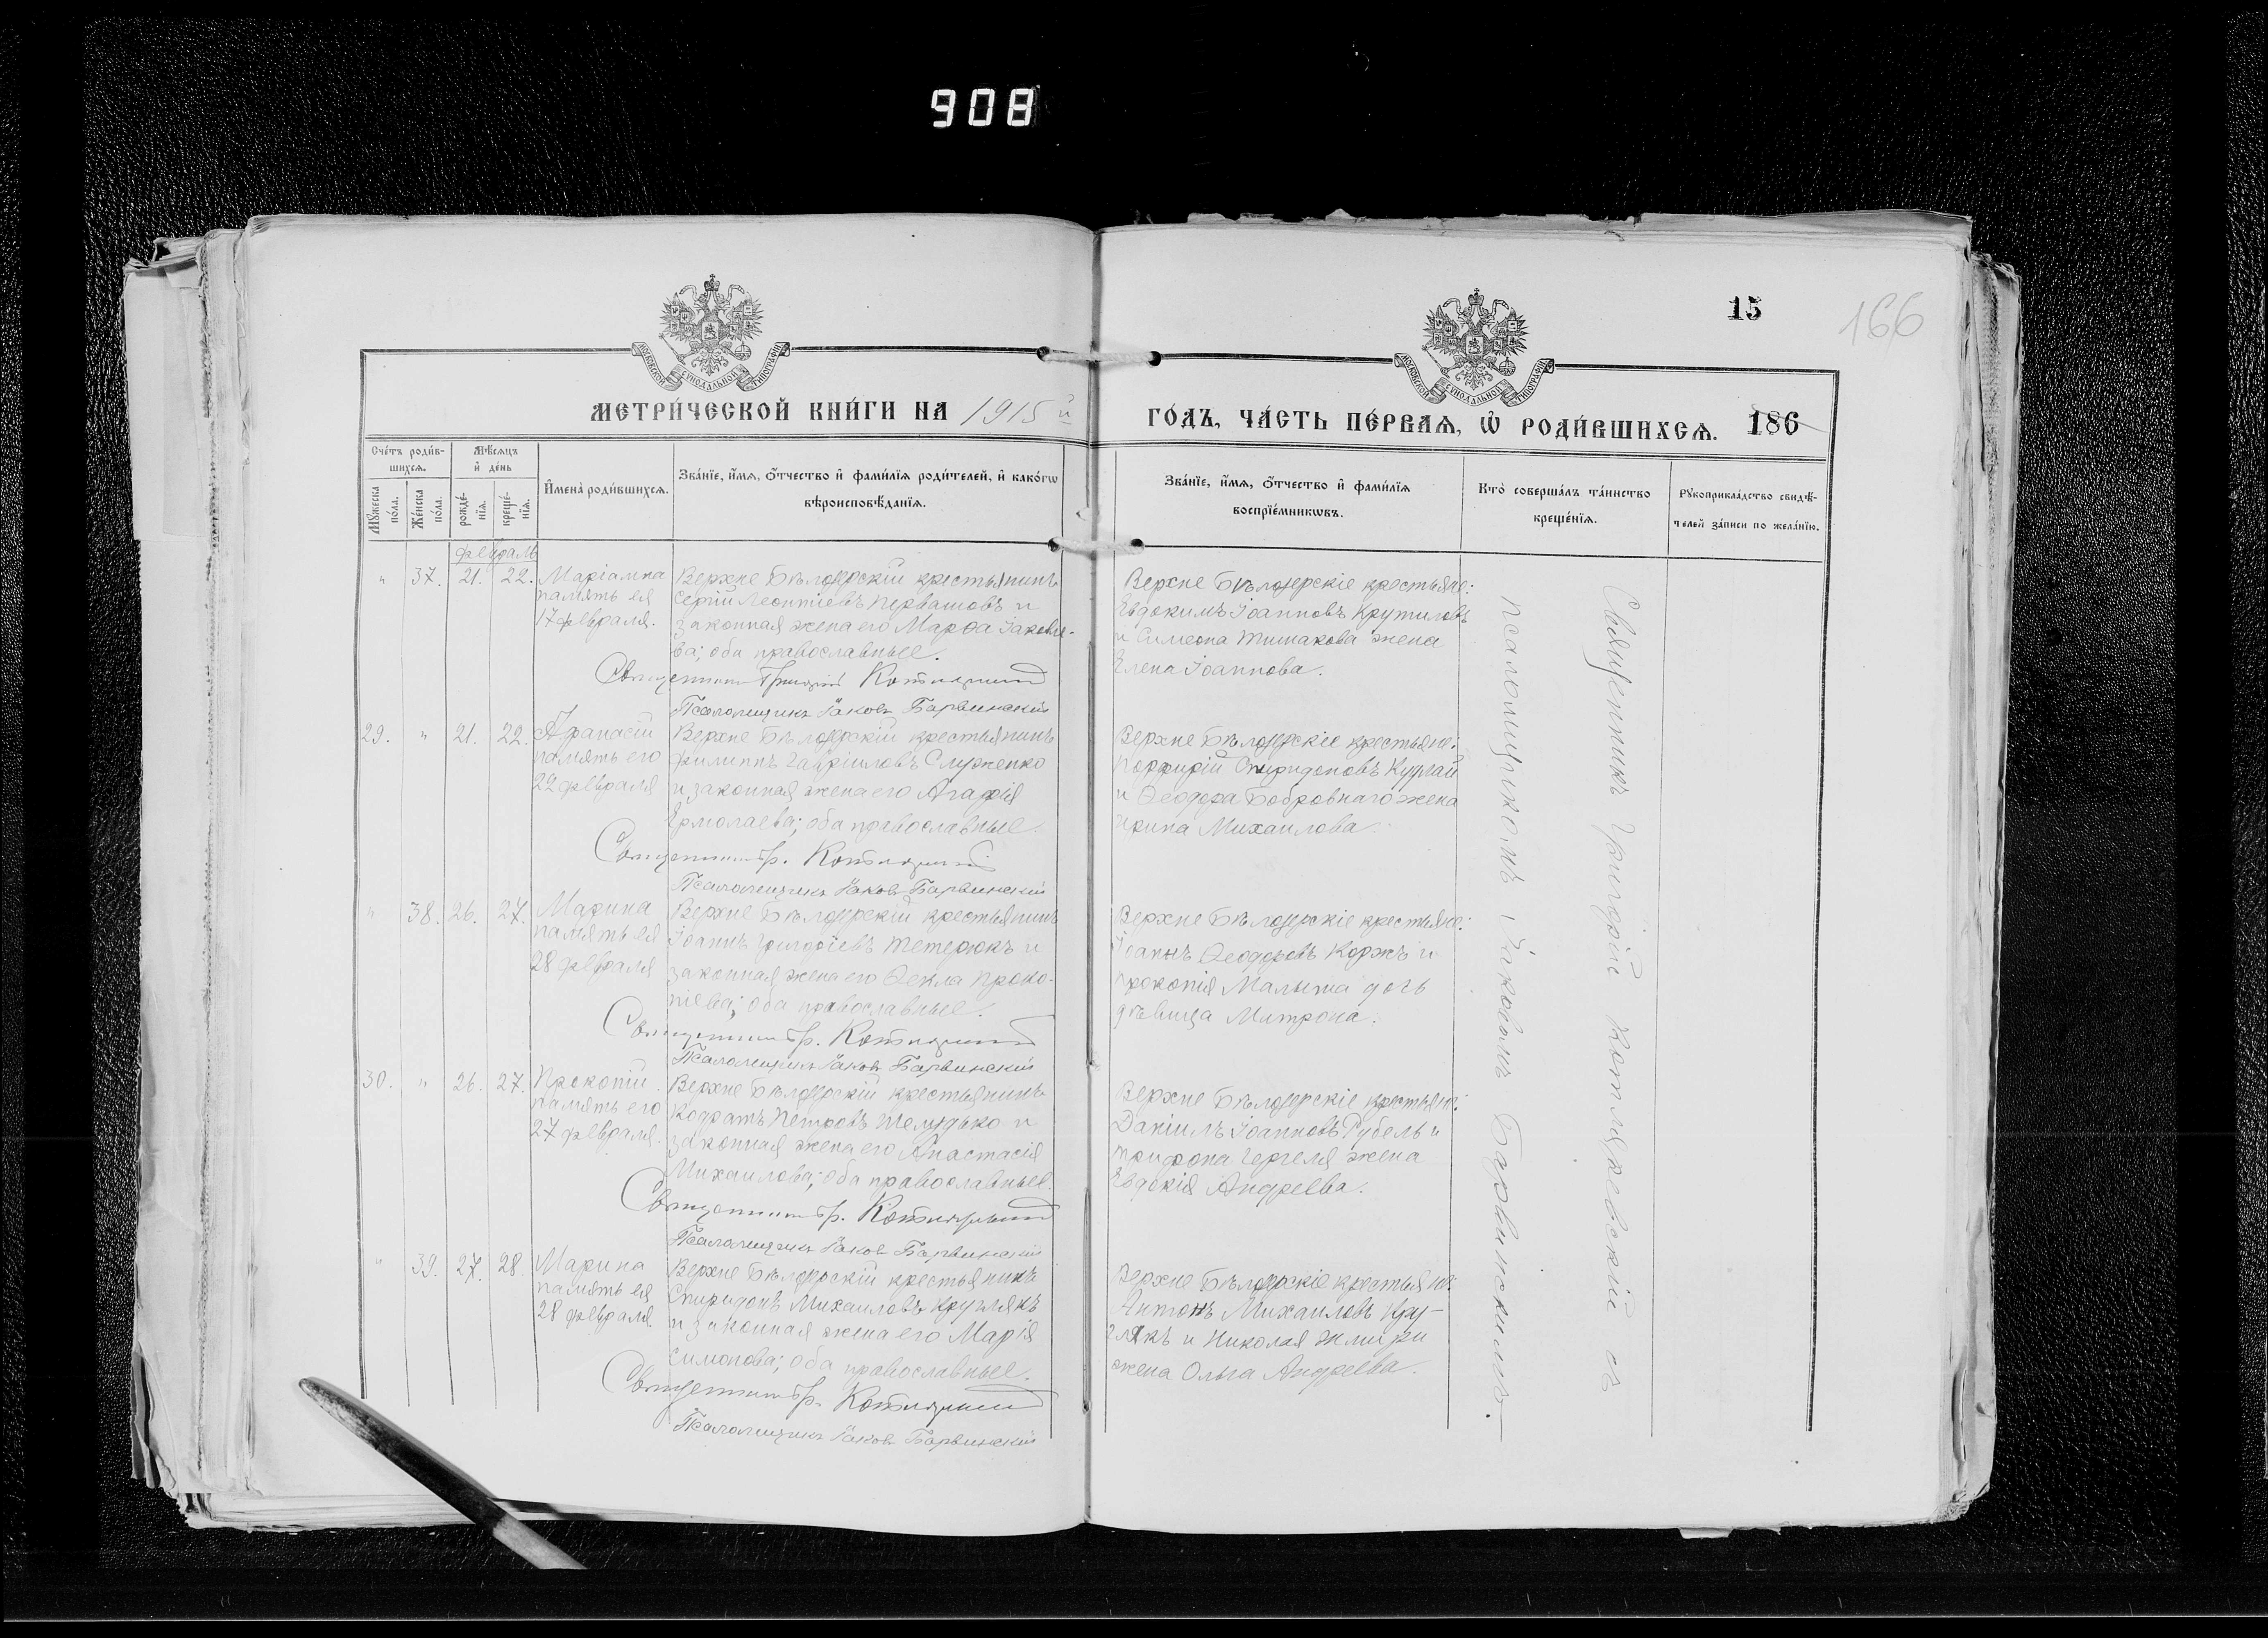 908
15
166
МОСКОВСКОЙ СѴНОДАЛЬНОЙ ТИПОГРАФІИ
МОСКОВСКОЙ СѴНОДАЛЬНОЙ ТИПОГРАФІИ
МЕТРИ́ЧЕСКОЙ КНИ́ГИ НА 1915й
ГО́ДЪ, ЧА́СТЬ ПЕ́РВАѦ, Ѡ҆ РОДИ́ВШИХСѦ. 186
Сче́тъ роди́в-
шихсѧ.
Мѣ́сѧцъ
и҆ де́нь
Мꙋ́жеска
по́ла.
Же́нска
по́ла.
рожде́-
нїѧ.
креще́-
нїѧ.
И҆мена̀ роди́вшихсѧ.
Зва́нїе, и҆́мѧ, ѻ҆́тчество и҆ фами́лїѧ роди́телей, и҆ како́гѡ
вѣроисповѣ́данїѧ.
Зва́нїе, и҆́мѧ, ѻ҆́тчество и҆ фами́лїѧ
воспрїе́мникѡвъ.
Кто̀ соверша́лъ та́инство
креще́нїѧ.
Рꙋкоприкла́дство свидѣ́-
телей за́писи по жела́нїю.
февраль
" 37. 21. 22. Маріамна
память ея
17 февраля.
Верхне Бѣлозерскій крестьянинъ
Сергій Леонтіевъ Первашовъ и
законная жена его Марѳа Іаковле-
ва; оба православные.
Священникъ Григорій Котляревский
Псаломщикъ Іаковъ Барвинскій
Верхне Бѣлозерскіе крестьяне:
Евдокимъ Іоанновъ Крутиловъ
и Симеона Тимакова жена
Елена Іоаннова.
29. " 21. 22. Аѳанасій
память его
22 февраля
Верхне Бѣлозерскій крестьянинъ
Филиппъ Гавріиловъ Служенко
и законная жена его Агафія
Ермолаева; оба православные.
Священникъ Гр. Котляревский
Псаломщикъ Іаковъ Барвинскій
Верхне Бѣлозерскіе крестьяне:
Порфирій Спиридоновъ Кудлай
и Ѳеодора Бобровнаго жена
Ирина Михаилова.
" 38. 26. 27. Марина
память ея
28 февраля
Верхне Бѣлозерскій крестьянинъ
Іоаннъ Григоріевъ Тетерюкъ и
законная жена его Ѳекла Проко-
піева; оба православные.
Священникъ Гр. Котляревский
Псаломщикъ Іаковъ Барвинскій
Верхне Бѣлозерскіе крестьяне:
Іоаннъ Ѳеодоровъ Коржъ и
Прокопія Малыша дочь
дѣвица Митрона.
30. " 26. 27. Прокопій
память его
27 февраля.
Верхне Бѣлозерскій крестьянинъ
Кодратъ Петровъ Шелудько и
законная жена его Анастасія
Михаилова; оба православные.
Священникъ Гр. Котляревский
Псаломщикъ Іаковъ Барвинскій
Верхне Бѣлозерскіе крестьяне:
Даніилъ Іоанновъ Рубель и
Трифона Гергеля жена
Евдокія Андреева.
" 39. 27. 28. Марина
память ея
28 февраля.
Верхне Бѣлозерскій крестьянинъ
Спиридонъ Михаиловъ Круглякъ
и законная жена его Марія
Симонова; оба православные.
Священникъ Гр. Котляревский
Псаломщикъ Іаковъ Барвинскій
Верхне Бѣлозерскіе крестьяне:
Антонъ Михаиловъ Кру-
глякъ и Николая
жена Ольга Андреева.
Священникъ Григорій Котляревскій съ
псаломщикомъ Іаковомъ Барвинскимъ.